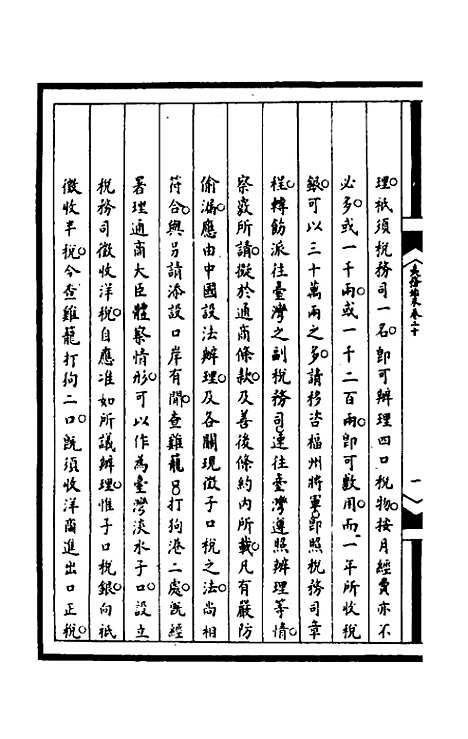 理。祇須稅務司一名。即可辦理四口稅物。按月經費亦不
必多。或一千兩。或一千二百兩。即可敷用。而一年所收稅
銀。可以三十萬兩之多。請移咨福州將軍。即照稅務司章
程。轉飭派往臺灣之副稅務司。速往臺灣遵照辦理等情。
察覈所請。擬於通商條款。及善後條約內所載。凡有嚴防
偷漏。應由中國設法辦理。及各關現徵子口稅之法。尚相
符合。與另請添設口岸有間。查雞籠口打狗港二處。旣經
署理通商大臣體察情形。可以作為臺灣淡水子口。設立
稅務司徵收洋稅。自應准如所議辦理。惟子口稅銀。向祇
徵收半稅。今查雞籠打狗二口。旣須收洋商進出口正稅。
夷務始末卷二十
一